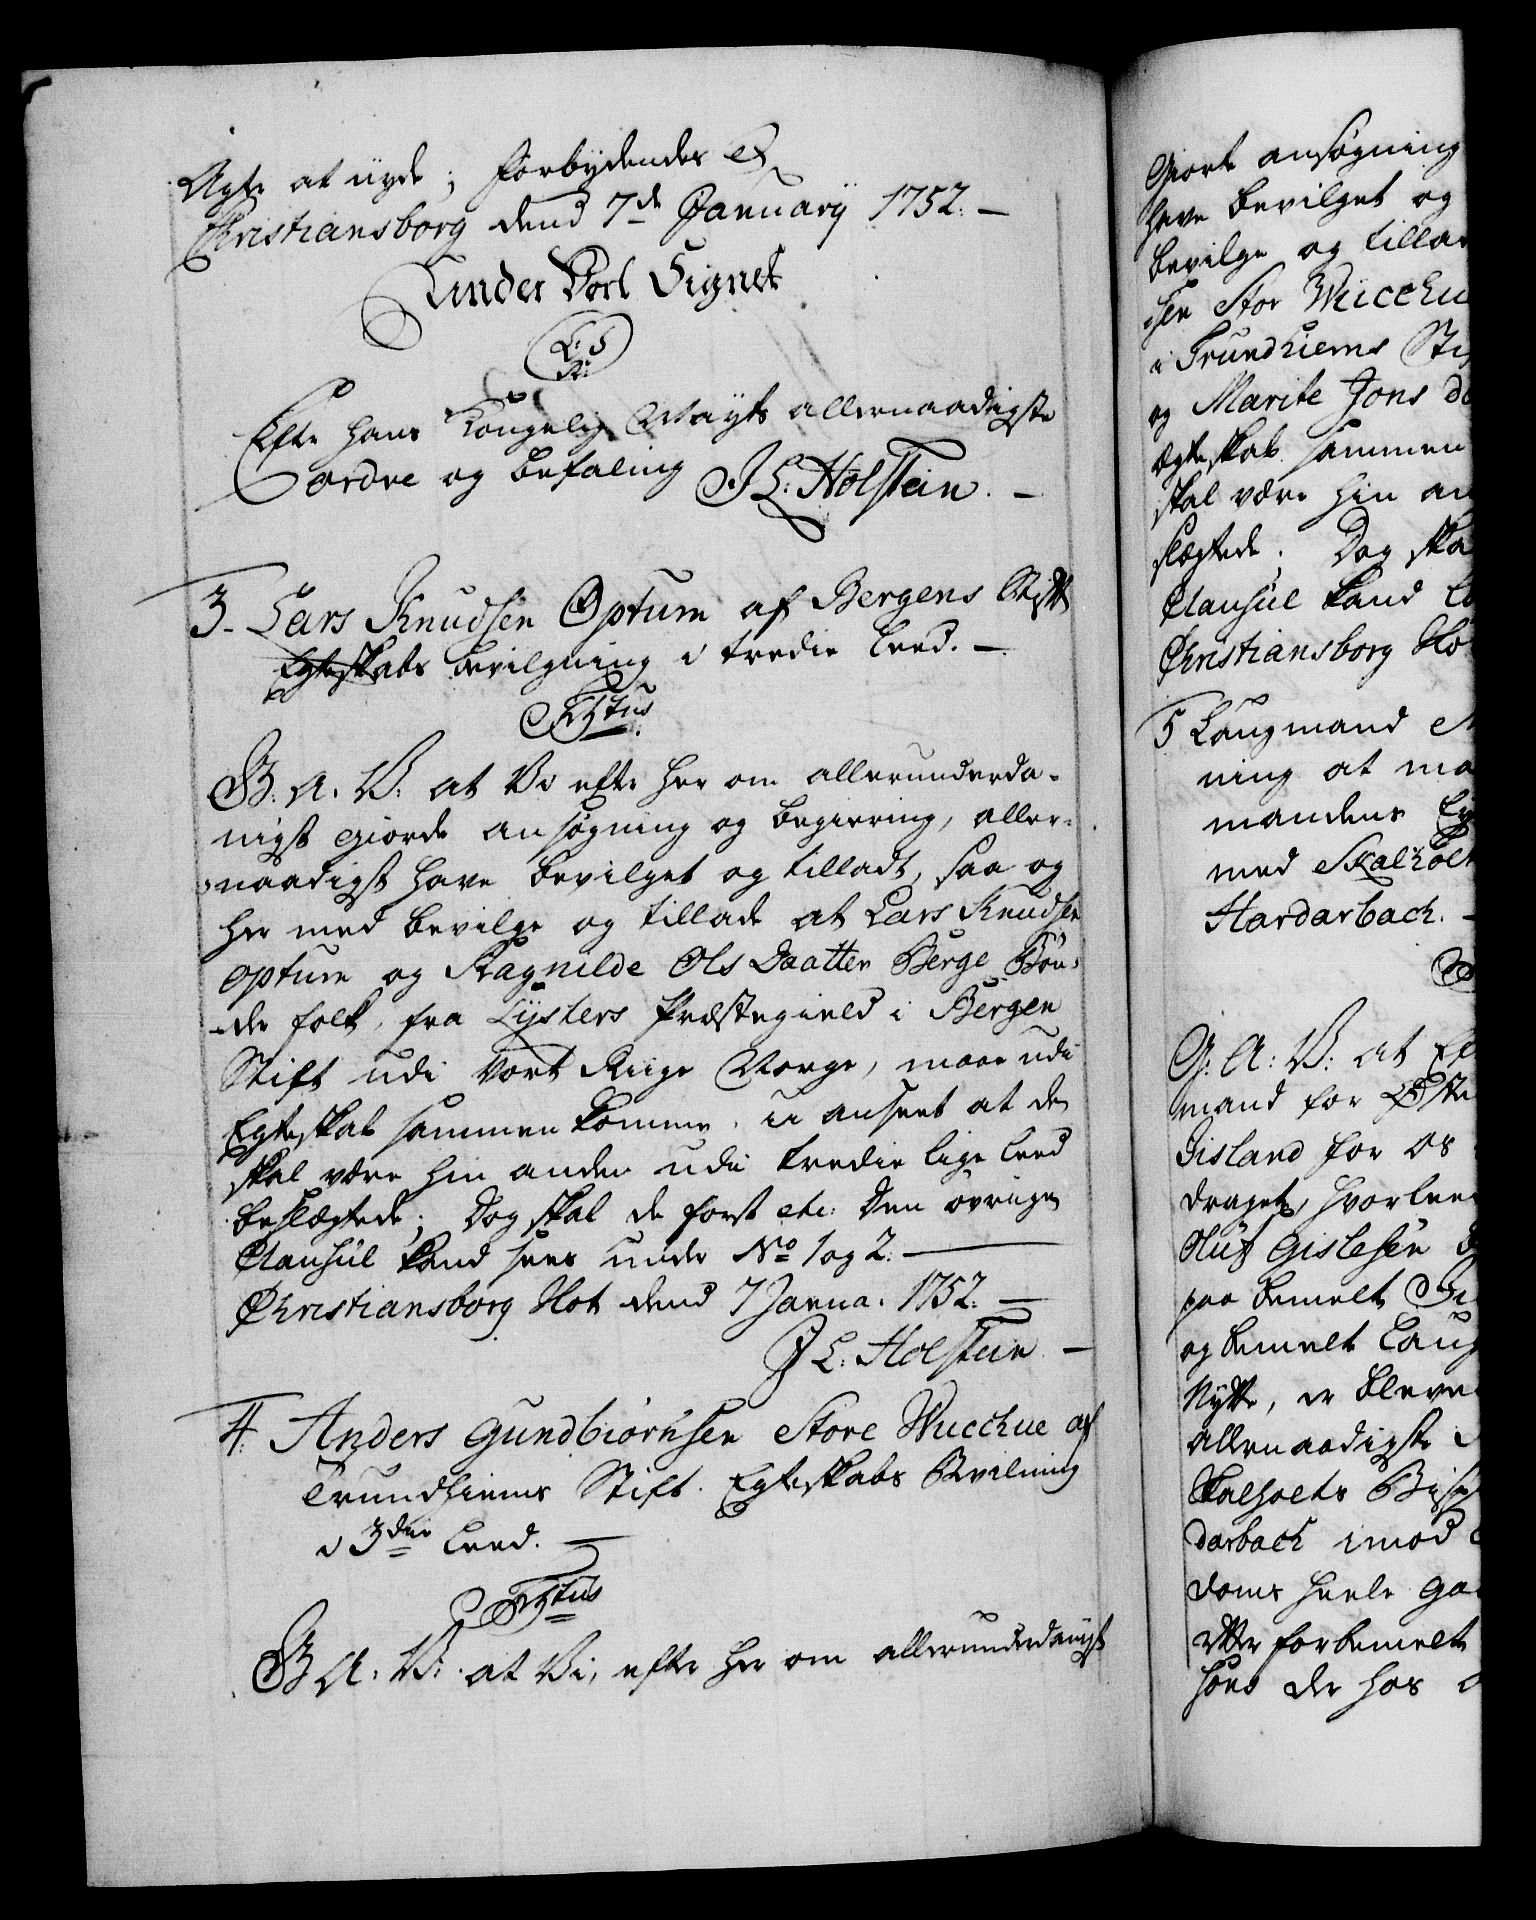 Agte at nyde; forbydendes &
Christiansborg dend 7de January 1752. —
Under Vort Signet
L: S
R:
Efter hans Kongelig Mayts allernaadigste
ordre og befaling J L: Holstein. —
3. Lars Knudsen Optum af Bergens Stift
Egteskabs bevilgning i tredie Leed. —
Textus
G: A. V: at Vi efter her om allerunderda-
nigst giorde ansøgning og begiering, aller-
naadigst have bevilget og tilladt, saa og
her med bevilge og tillade at Lars Knudsen
Optum og Ragnilde Ols Daatter Berge Bøn-
de folk, fra Lysters Præstegield i Bergen
Stift udi Vort Riige Norge, maae udi
Egteskab sammen komme, u anseet at de
skal være hin anden udi tredie lige Leed
beslægtede; Dog skal de først etc: Den øvrige
Clausul kand sees under No 1 og 2. —
Christiansborg Slot dend 7 Janua. 1752. —
J L: Holstein. —
4. Anders Gundbiørnsen Store Wucchue af
Trundhiems Stift. Egteskabs Bevilning
i 3die Leed. —
Textus
G A: V: at Vi, efter her om allerunderdanigst
Giorte ansøgning
have bevilget og
bevilge og tillad
sen Stor Wucchu
i Trundhiems Stif
og Marite Jons D
ægteskab sammen
skal være hin an
slægtede; Dog ska
Clausul kand
Christiansborg Slo
5 Laugmand
ning at ma
mandens
med Skalholt
Hardarbach. —
G: A: V: at
mand for Øste
Jisland for os
draget, hvorleed
Oluf Gislesen
paa bemelt
og bemelt Laug
Nytte, er bleve
allernaadigste
Skalholts Bisp
darbach imod
doms heele Ga
efter forbemelt
hans der hos